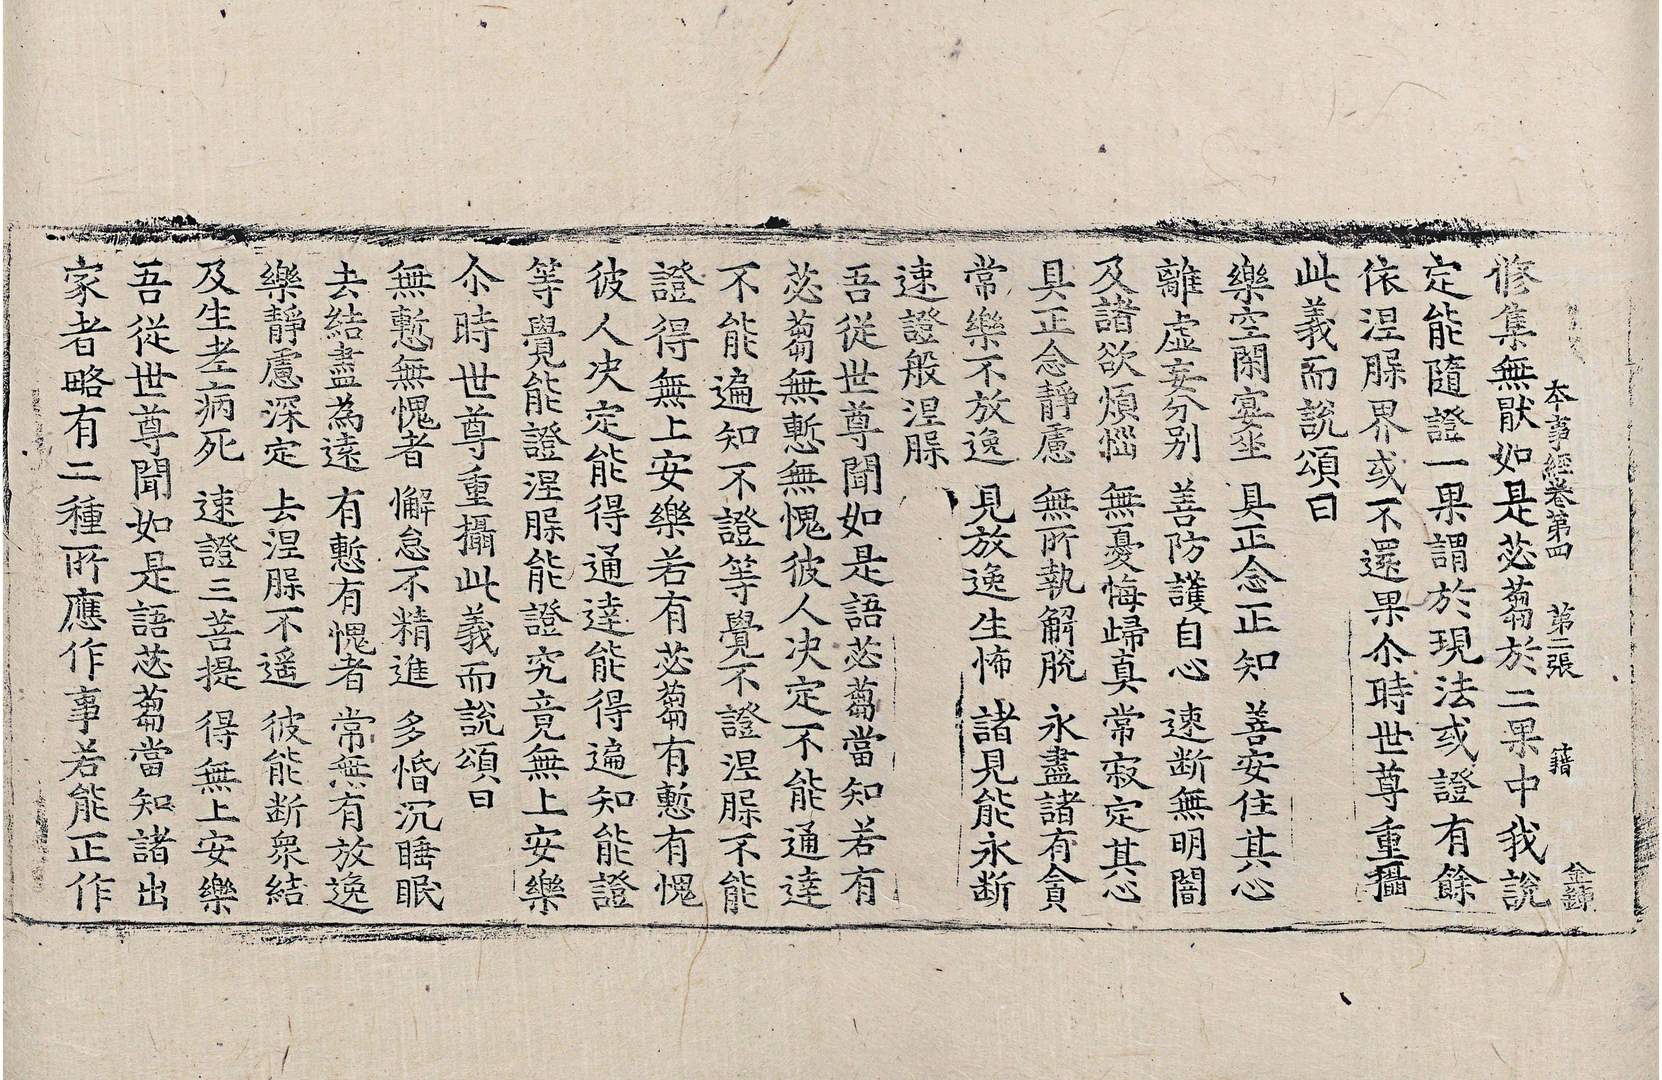 本事經卷第四 第二張 籍 金鍊
修集無猒如是苾蒭於二果中我說
定能隨證一果謂於現法或證有餘
依涅槃界或不還果尒時世尊重攝
此義而說頌曰
樂空閑宴坐 具正念正知 善安住其心
離虛妄分別 善防護自心 速断無明闇
及諸欲煩惱 無憂悔歸真 常寂定其心
具正念靜慮 無所執解脫 永盡諸有貪
常樂不放逸 見放逸生怖 諸見能永断
速證般涅槃
吾從世尊聞如是語苾蒭當知若有
苾蒭無慙無愧彼人决定不能通達
不能遍知不證等覺不證涅槃不能
證得無上安樂若有苾蒭有慙有愧
彼人决定能得通達能得遍知能證
等覺能證涅槃能證究竟無上安樂
尒時世尊重攝此義而說頌曰
無慙無愧者 懈怠不精進 多惛沉睡眠
去結盡為遠 有慙有愧者 常無有放逸
樂靜慮深定 去涅槃不遥 彼能断衆結
及生老病死 速證三菩提 得無上安樂
吾從世尊聞如是語苾蒭當知諸出
家者略有二種所應作事若能正作